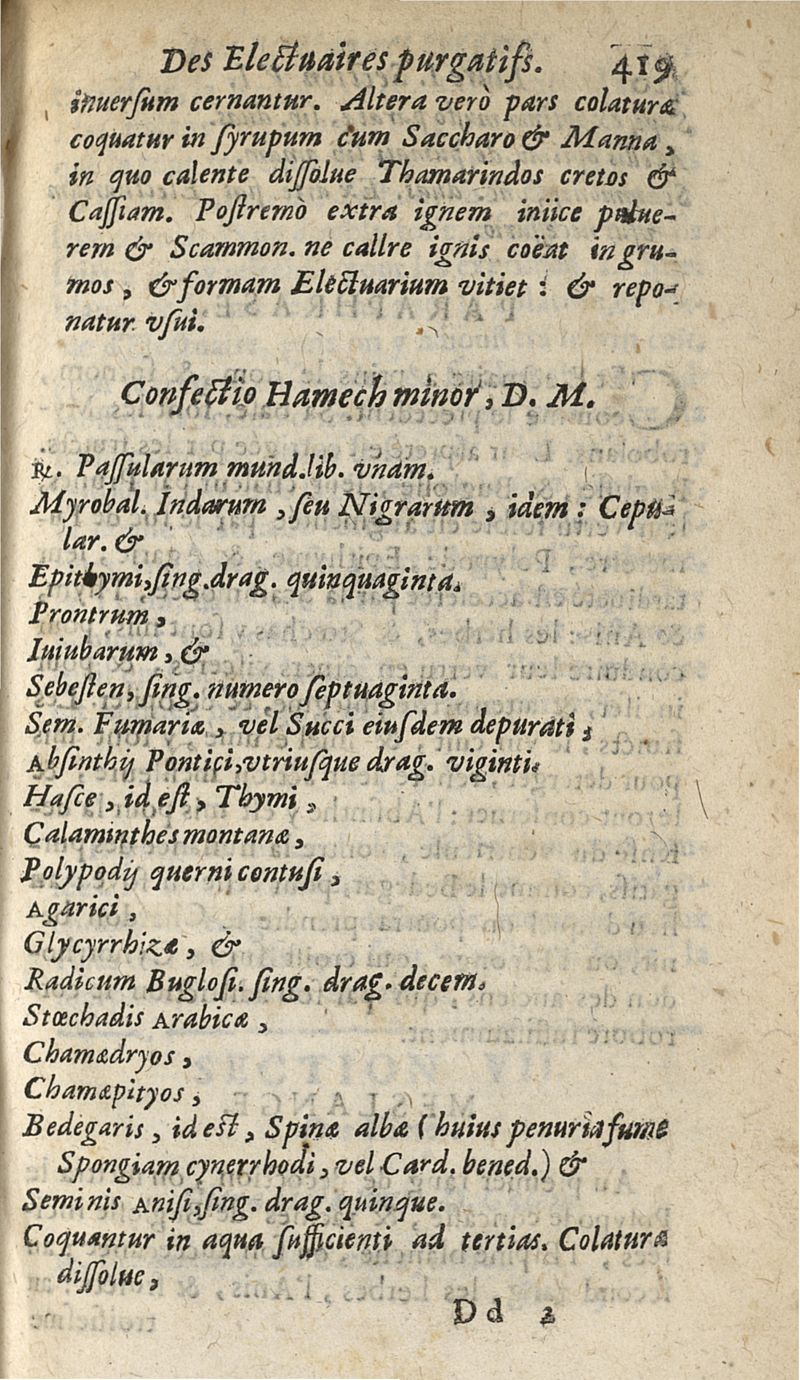 Des Electuaires purgatifs. 419
inuersum cernantur. Altera verò pars colaturæ
coquatur in ſyrupum cum Saccharo & Manna,
in quo calente diſſolue Thamarindos cretos &
Caſſiam. Poſtremò extra ignem iniice pulue-
rem & Scammon. ne callre ignis coëat in gru-
mos, & formam Electuarium vitiet: & repo-
natur vſui.
Confectio Hamech minor, D. M.
℞. Paſſularum mund. lib. vnam.
Myrobal. Indarum, ſeu Nigrarum, idem: Cepu-
lar. &
Epithymi, ſing. drag. quinquaginta.
Prontrum,
Iuiubarum, &
Sebeſten, ſing. numero ſeptuaginta.
Sem. Fumariæ, vel Succi eiuſdem depurati;
Abſinthij Pontici, vtriuſque drag. viginti.
Haſce, id eſt, Thymi,
Calaminthes montanæ,
Polypodij querni contuſi,
Agarici,
Glycyrrhizæ, &
Radicum Bugloſi. ſing. drag. decem.
Stœchadis Arabicæ,
Chamædryos,
Chamæpityos,
Bedegaris, id eſt, Spinæ albæ (huius penuria ſume
Spongiam cynerrhodi, vel Card. bened.) &
Seminis Aniſi, ſing. drag. quinque.
Coquantur in aqua ſufficienti ad tertias. Colaturæ
diſſolue,
Dd 2